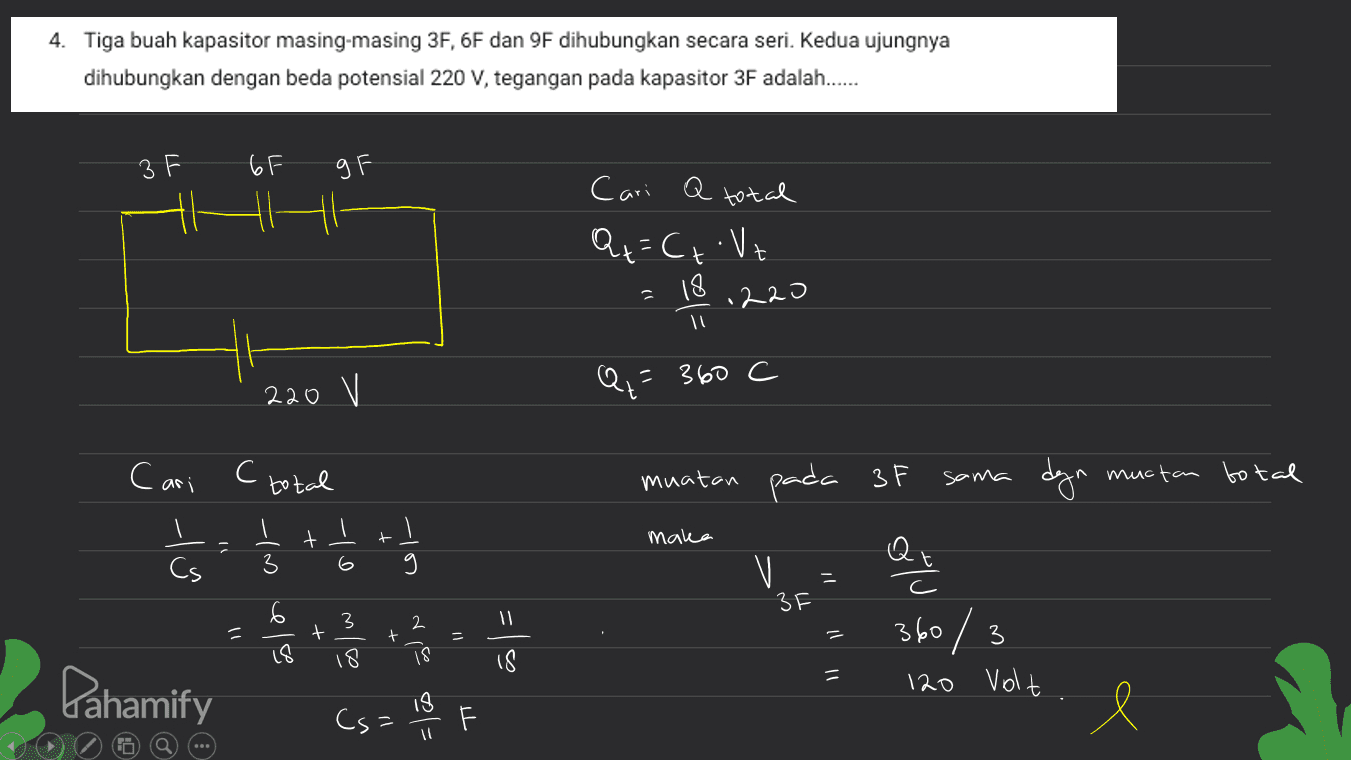 4. Tiga buah kapasitor masing-masing 3F, 6F dan 9F dihubungkan secara seri. Kedua ujungnya
dihubungkan dengan beda potensial 220 V, tegangan pada kapasitor 3F adalah......
3F 6F 9F
220 V
Cari C total
1/Cs = 1/3 + 1/6 + 1/9
= 6/18 + 3/18 + 2/18 = 11/18
Cs = 18/11 F
Cari Q total
Qt = Ct . Vt
= 18/11 . 220
Qt = 360 C
muatan pada 3F sama dgn muatan total
maka
V3F = Qt/C
= 360/3
= 120 Volt.
Pahamify